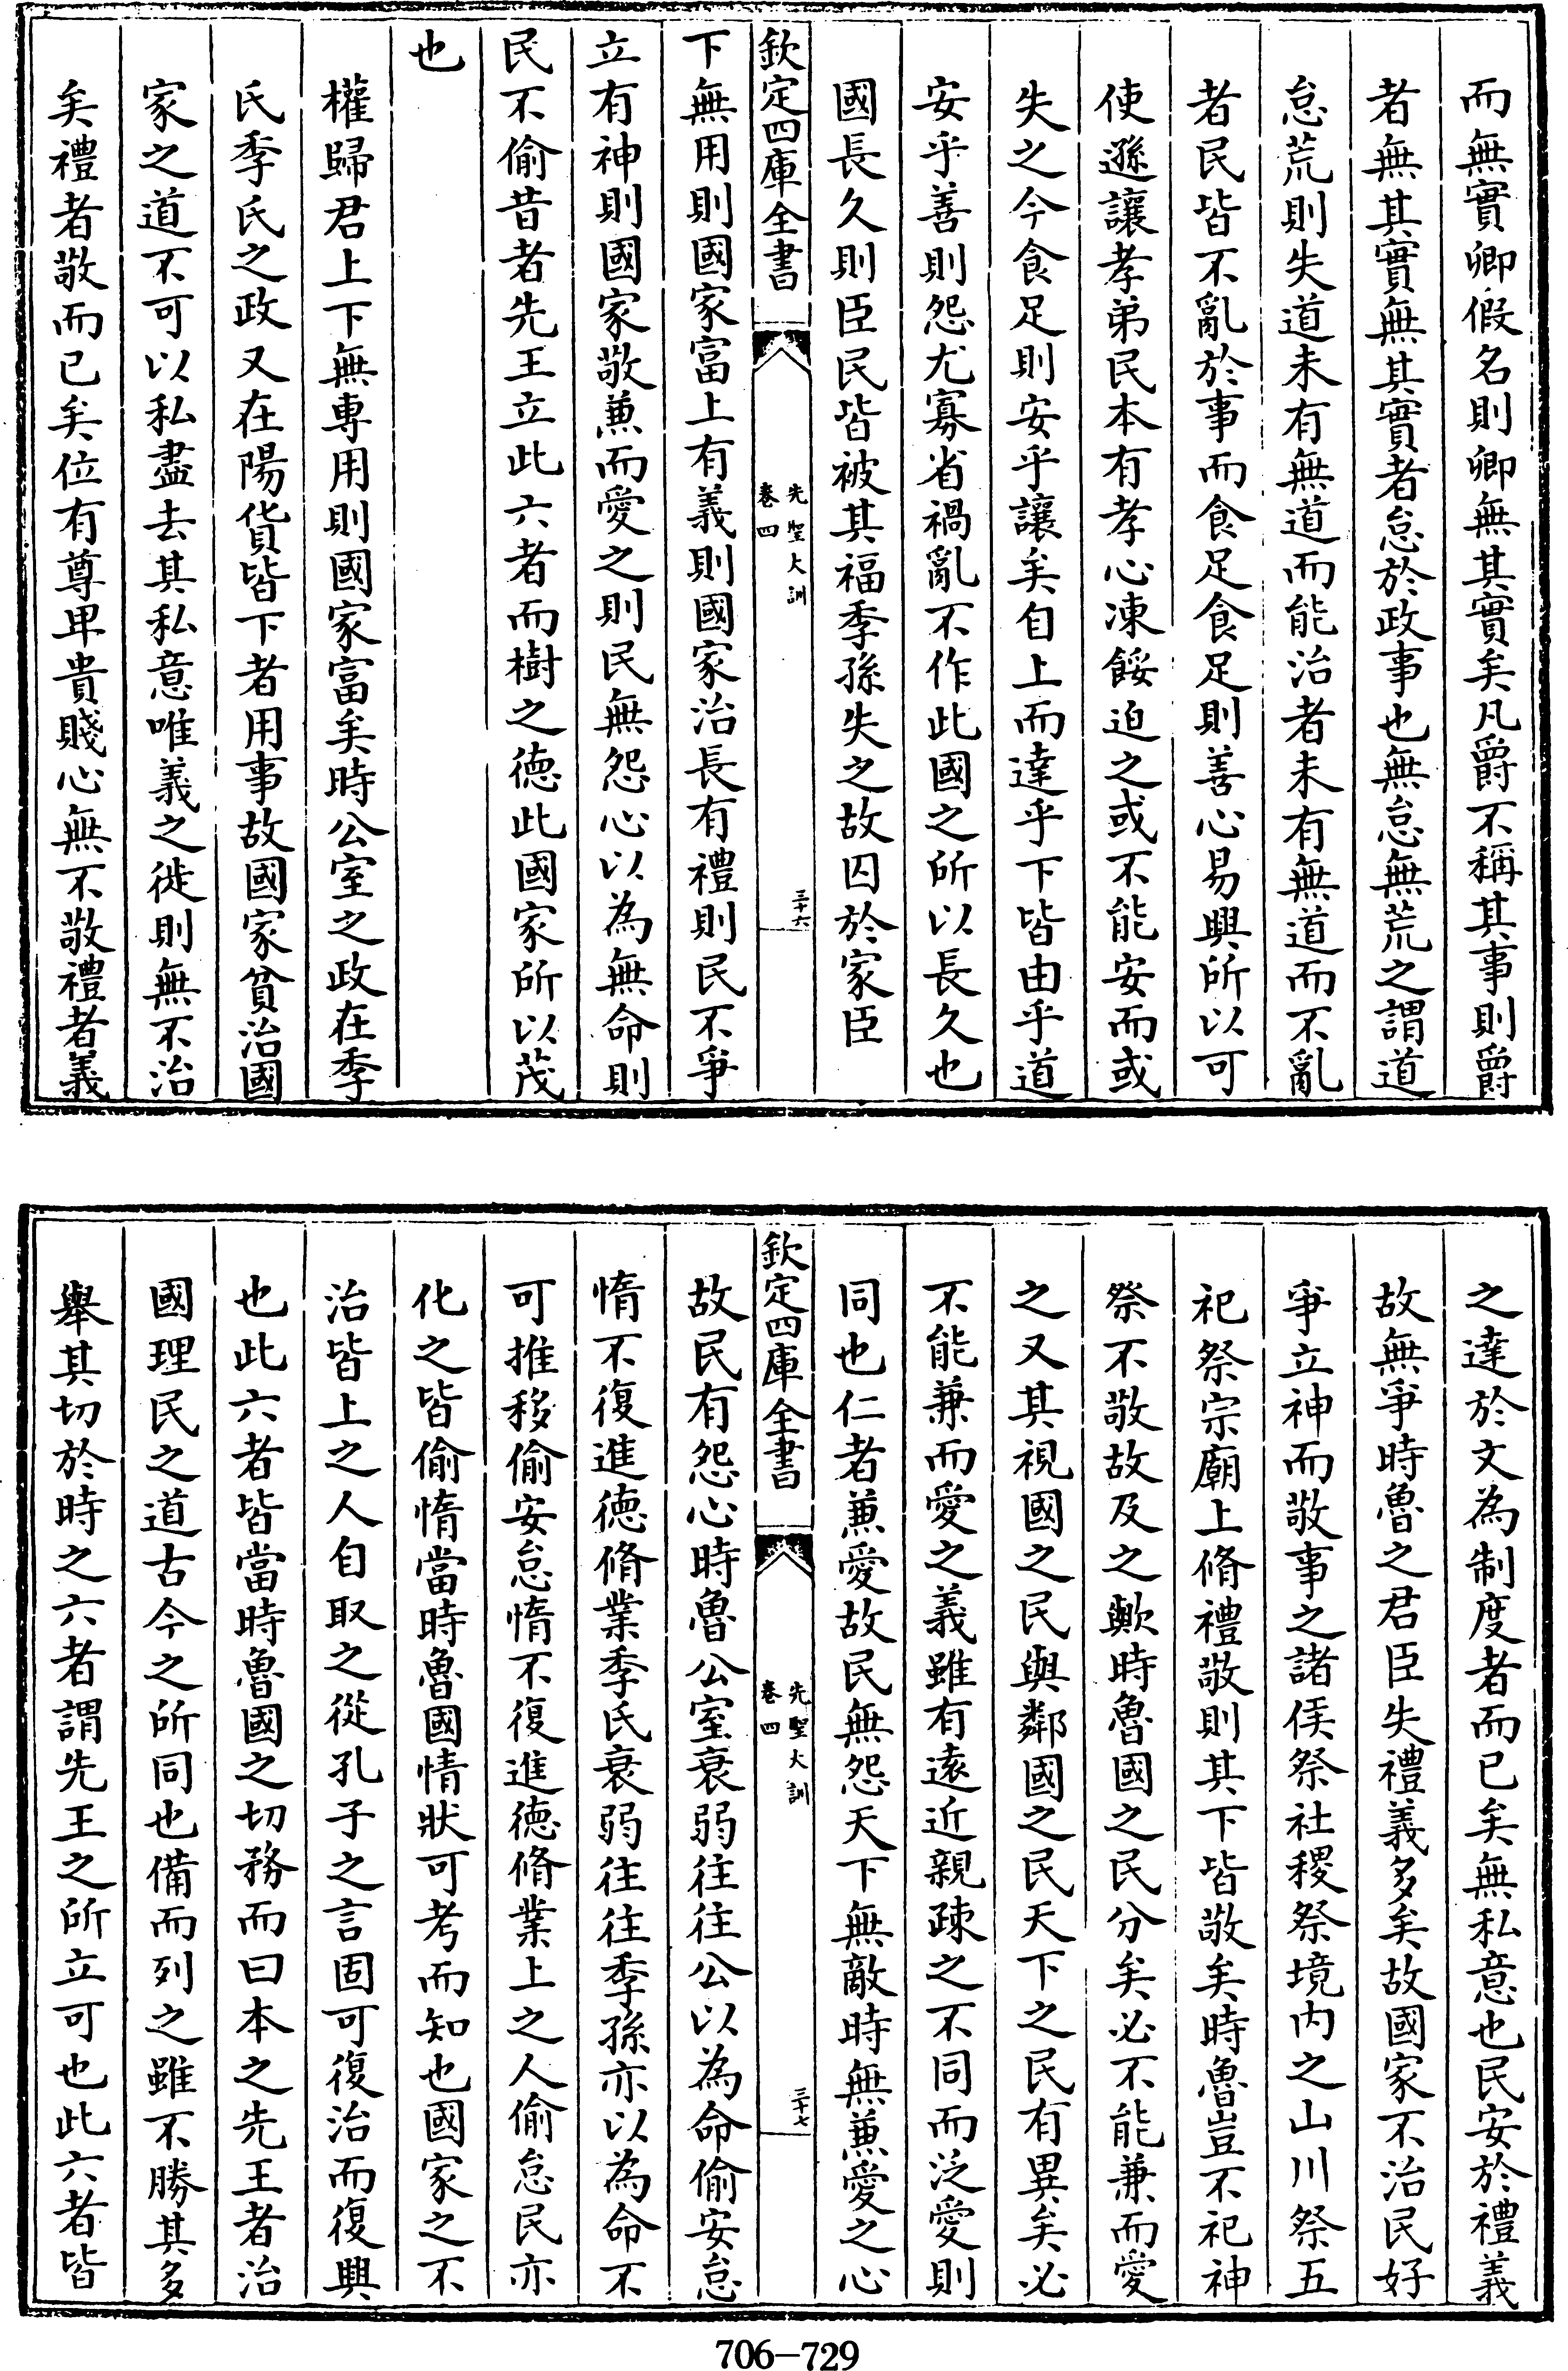 而無實卿假名則卿無其實矣凡爵不稱其事則爵
者無其實無其實者怠於政事也無怠無荒之謂道
怠荒則失道未有無道而能治者未有無道而不亂
者民皆不亂於事而食足食足則善心易興所以可
使遜讓孝弟民本有孝心凍餒迫之或不能安而或
失之今食足則安乎讓矣自上而達乎下皆由乎道
安乎善則怨尤寡省禍亂不作此國之所以長久也
國長久則臣民皆被其福季孫失之故囚於家臣
欽定四庫全書
先聖大訓
卷四
三十六
下無用則國家富上有義則國家治長有禮則民不爭
立有神則國家敬兼而愛之則民無怨心以為無命則
民不偷昔者先王立此六者而樹之德此國家所以茂
也
權歸君上下無專用則國家富矣時公室之政在季
氏季氏之政又在陽貨皆下者用事故國家貧治國
家之道不可以私盡去其私意唯義之徙則無不治
矣禮者敬而已矣位有尊卑貴賤心無不敬禮者義
之達於文為制度者而已矣無私意也民安於禮義
故無爭時魯之君臣失禮義多矣故國家不治民好
爭立神而敬事之諸侯祭社稷祭境内之山川祭五
祀祭宗廟上脩禮敬則其下皆敬矣時魯豈不祀神
祭不敬故及之歟時魯國之民分矣必不能兼而愛
之又其視國之民與鄰國之民天下之民有異矣必
不能兼而愛之義雖有遠近親疎之不同而泛愛則
同也仁者兼愛故民無怨天下無敵時無兼愛之心
欽定四庫全書
先聖大訓
卷四
三十七
故民有怨心時魯公室衰弱往往公以為命偷安怠
惰不復進德脩業季氏衰弱往往季孫亦以為命不
可推移偷安怠惰不復進德脩業上之人偷怠民亦
化之皆偷惰當時魯國情狀可考而知也國家之不
治皆上之人自取之從孔子之言固可復治而復興
也此六者皆當時魯國之切務而曰本之先王者治
國理民之道古今之所同也備而列之雖不勝其多
舉其切於時之六者謂先王之所立可也此六者皆
706-729